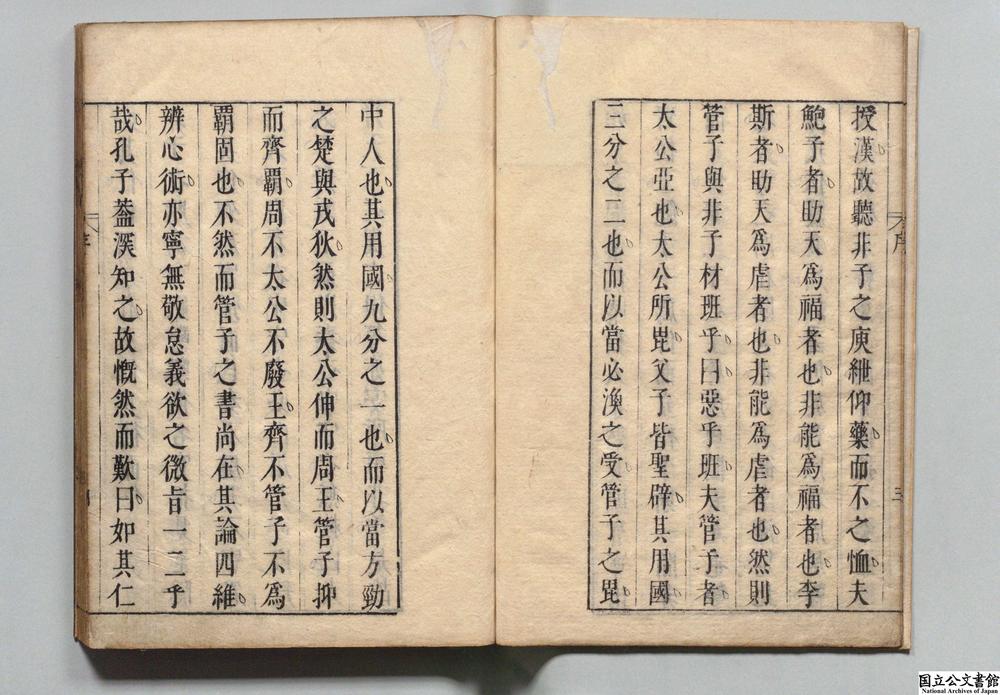 授漢故聽非子之庾紲仰藥而不之恤夫
鮑子者助天爲福者也非能爲福者也李
斯者助天爲虐者也非能爲虐者也然則
管子與非子材班乎曰惡乎班夫管子者
太公亞也太公所毘父子皆聖辟其用國
三分之二也而以當必渙之受管子之毘
序
三
中人也其用國九分之一也而以當方勁
之楚與戎狄然則太公伸而周王管子抑
而齊覇周不太公不廢王齊不管子不爲
覇固也不然而管子之書尚在其論四維
辨心術亦寧無敬怠義欲之微旨一二乎
哉孔子葢深知之故慨然而歎曰如其仁
序
国立公文書館
National Archives of Japan